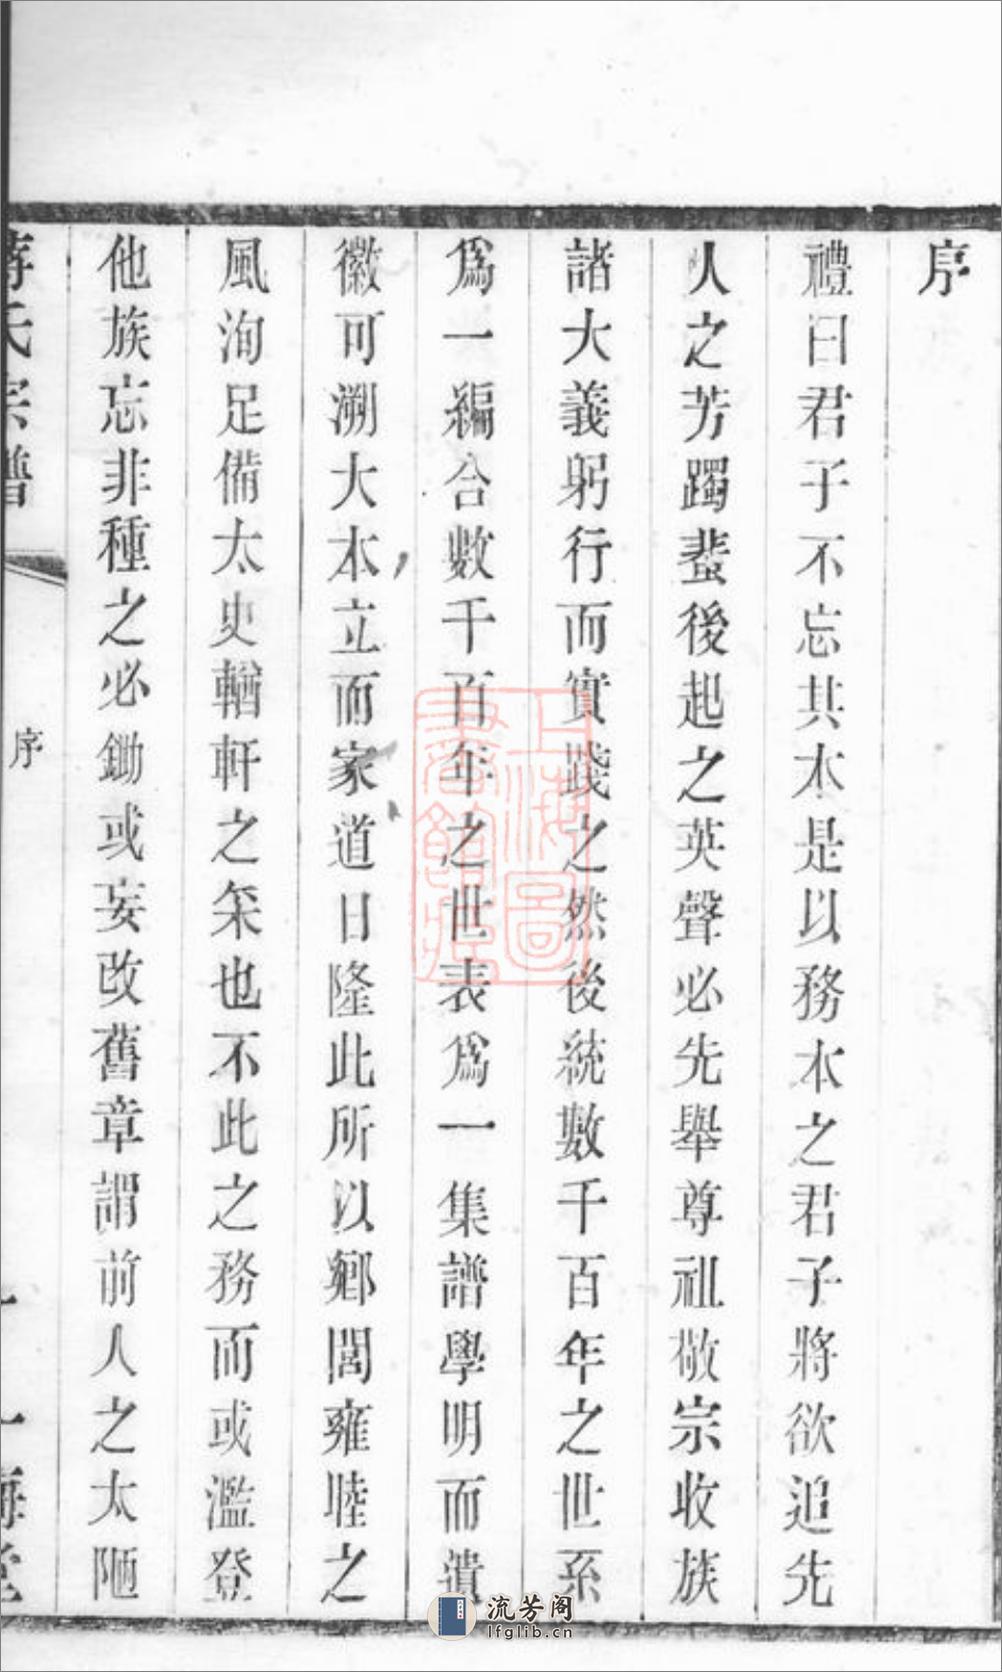 序
禮曰君子不忘其本是以務本之君子將欲追先
人之芳躅蜚後起之英聲必先舉尊祖敬宗收族
諸大義躬行而實踐之然後統數千百年之世系
爲一編合數千百年之世表爲一集譜學明而遺
徽可溯大本立而家道日隆此所以鄉閭雍睦之
風洵足備太史輶軒之采也不此之務而或濫登
他族忘非種之必鋤或妄改舊章謂前人之太陋
蔣氏宗譜
序
一
一梅堂
上海圖
書館藏
流芳阁
lfglib.cn